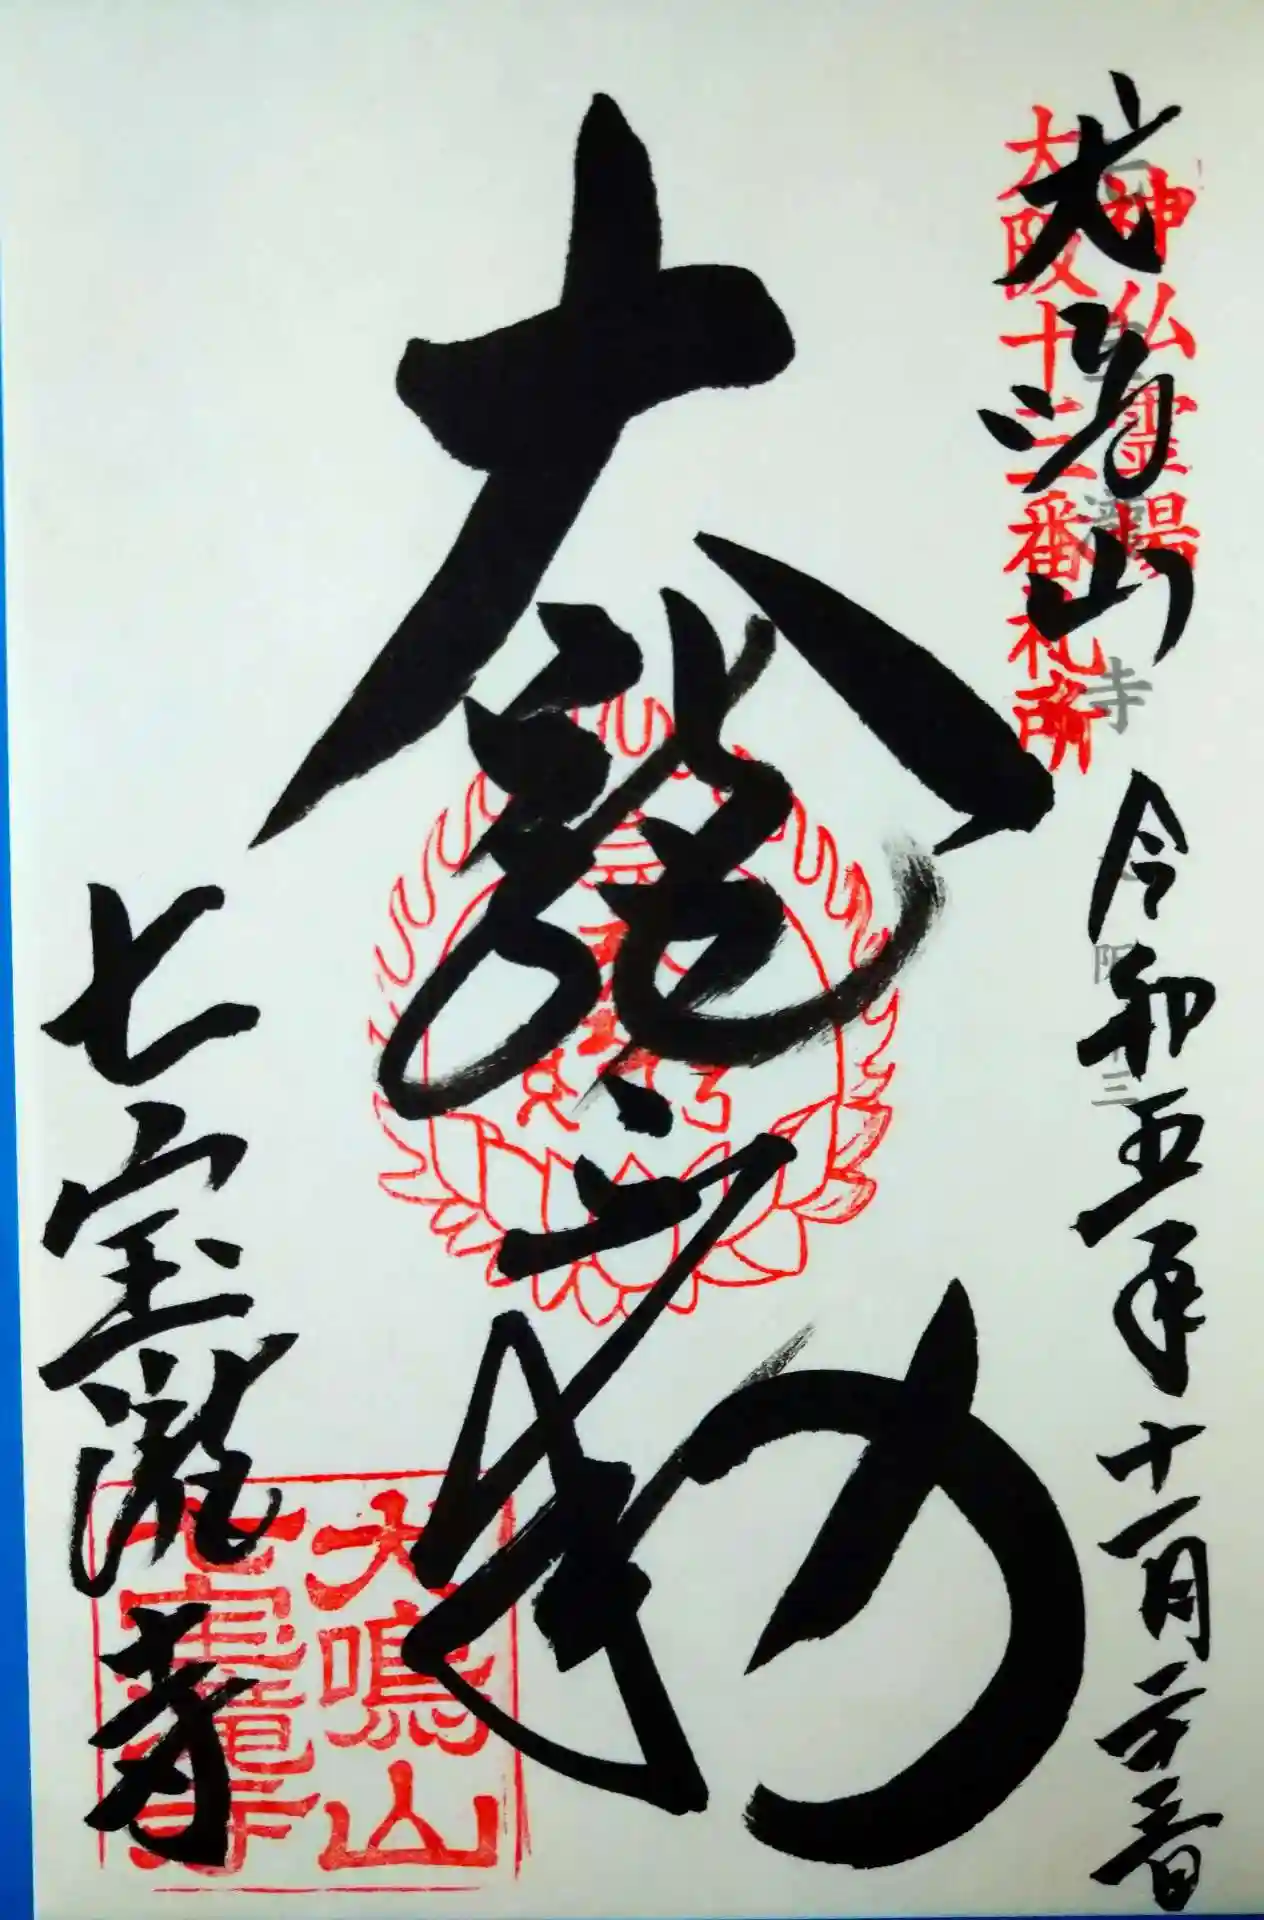 神仏霊場
大阪十三番札所
犬鳴山
七宝瀧寺
令和五年十一月二十三日
大龍不動
七宝瀧寺
犬鳴山
七宝瀧寺